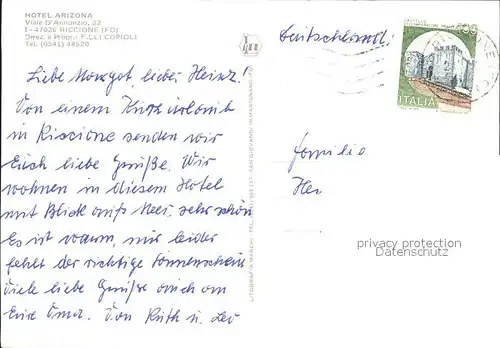 HOTEL ARIZONA
Viale D'Annunzio, 22
I - 47036 RICCIONE (FO)
Direz. e Propr.: F.LLI COPIOLI
Tel. (0541) 48520
Deutschland!
ITALIA
Liebe Margot, lieber Heinz.
Von einem Kurzurlaub
in Riccione senden wir
Euch liebe Grüße. Wir
wohnen in diesem Hotel
mit Blick aufs Meer, sehr schön
Es ist warm, nur leider
fehlt der richtige Sonnenschein
Viele liebe Grüße auch an
Eure Oma. Von Ruth u. Leo
Familie
Hei
privacy protection
Datenschutz